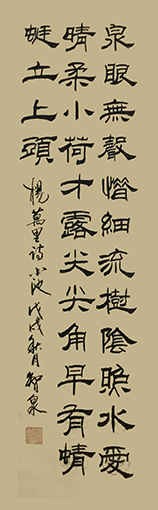 泉眼無聲惜細流樹陰照水愛
晴柔小荷才露尖尖角早有蜻
蜓立上頭
楊萬里詩小池戊戌秋月智泉